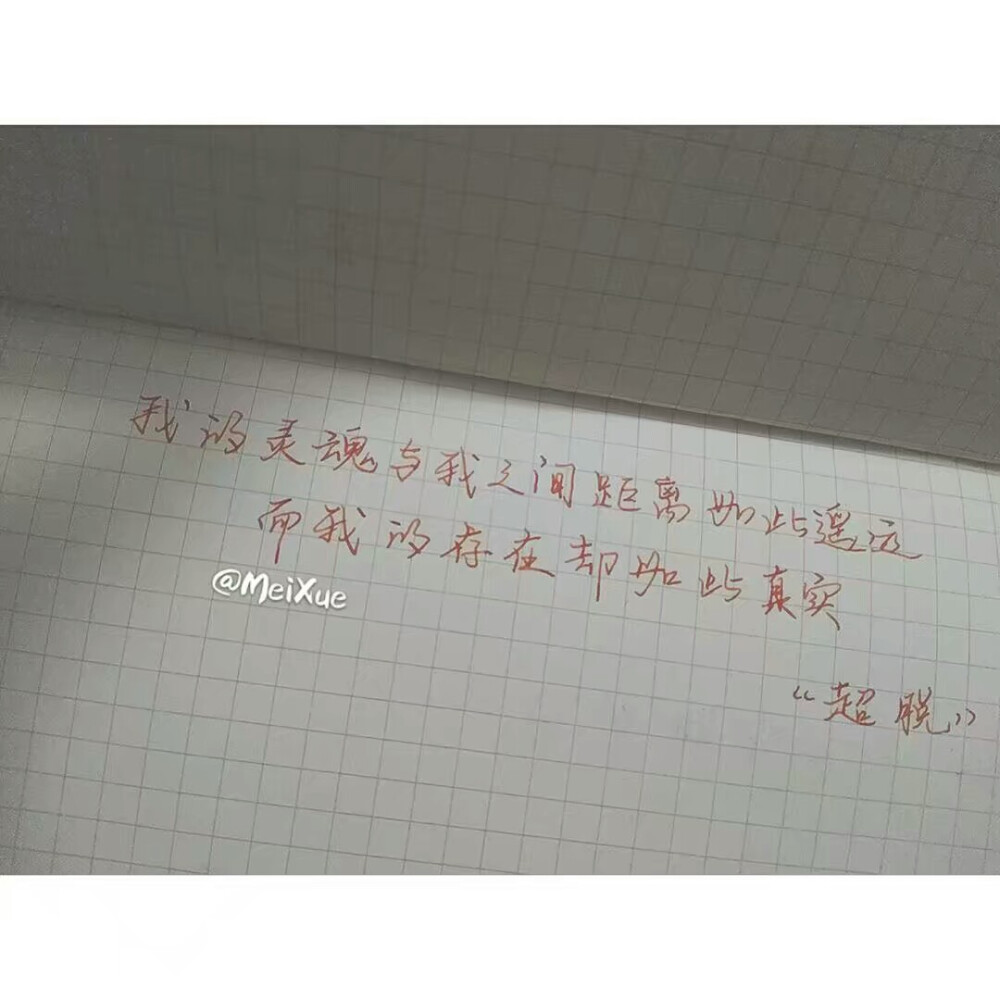 我的灵魂与我之间距离如此遥远
而我的存在却如此真实
@MeiXue
“超脱”